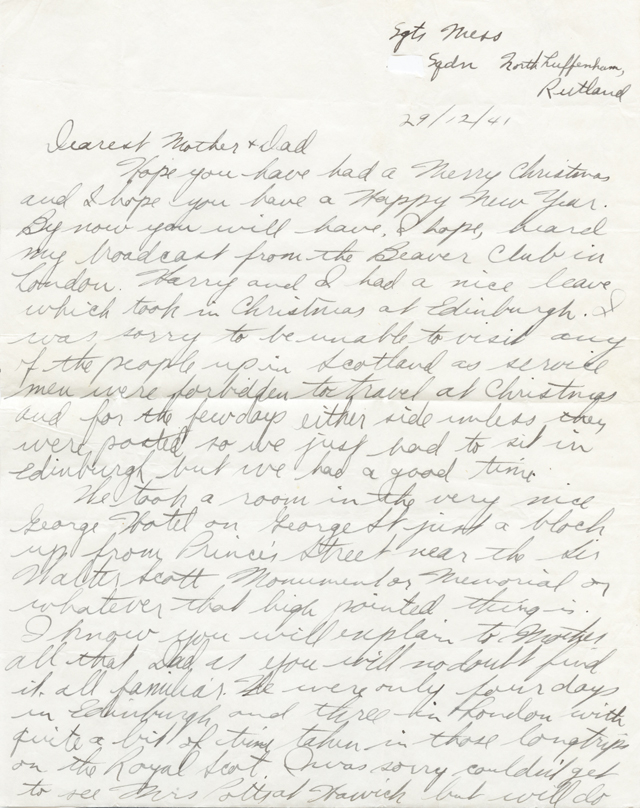 Sgts Mess
Sqdn North Luffenham,
Rutland
29/12/41
Dearest Mother + Dad
Hope you have had a Merry Christmas
and I hope you have a Happy New Year.
By now you will have, I hope, heard
my broadcast from the Beaver Club in
London. Harry and I had a nice leave
which took in Christmas at Edinburgh. I
was sorry to be unable to visit any
of the people up in Scotland as service
men were forbidden to travel at Christmas
and for the few days either side unless they
were posted so we just had to sit in
Edinburgh but we had a good time.
We took a room in the very nice
George Hotel on George St just a block
up from Princes Street near the Sir
Walter Scott Monument or Memorial or
whatever that high pointed thing is.
I know you will explain to Mother
all that, Dad as you will no doubt find
it all familiar. We were only four days
in Edinburgh and three in London with
quite a bit of time taken in those long trips
on the Royal Scot. I was sorry couldn't get
to see Mrs Potts at Hawick but will do